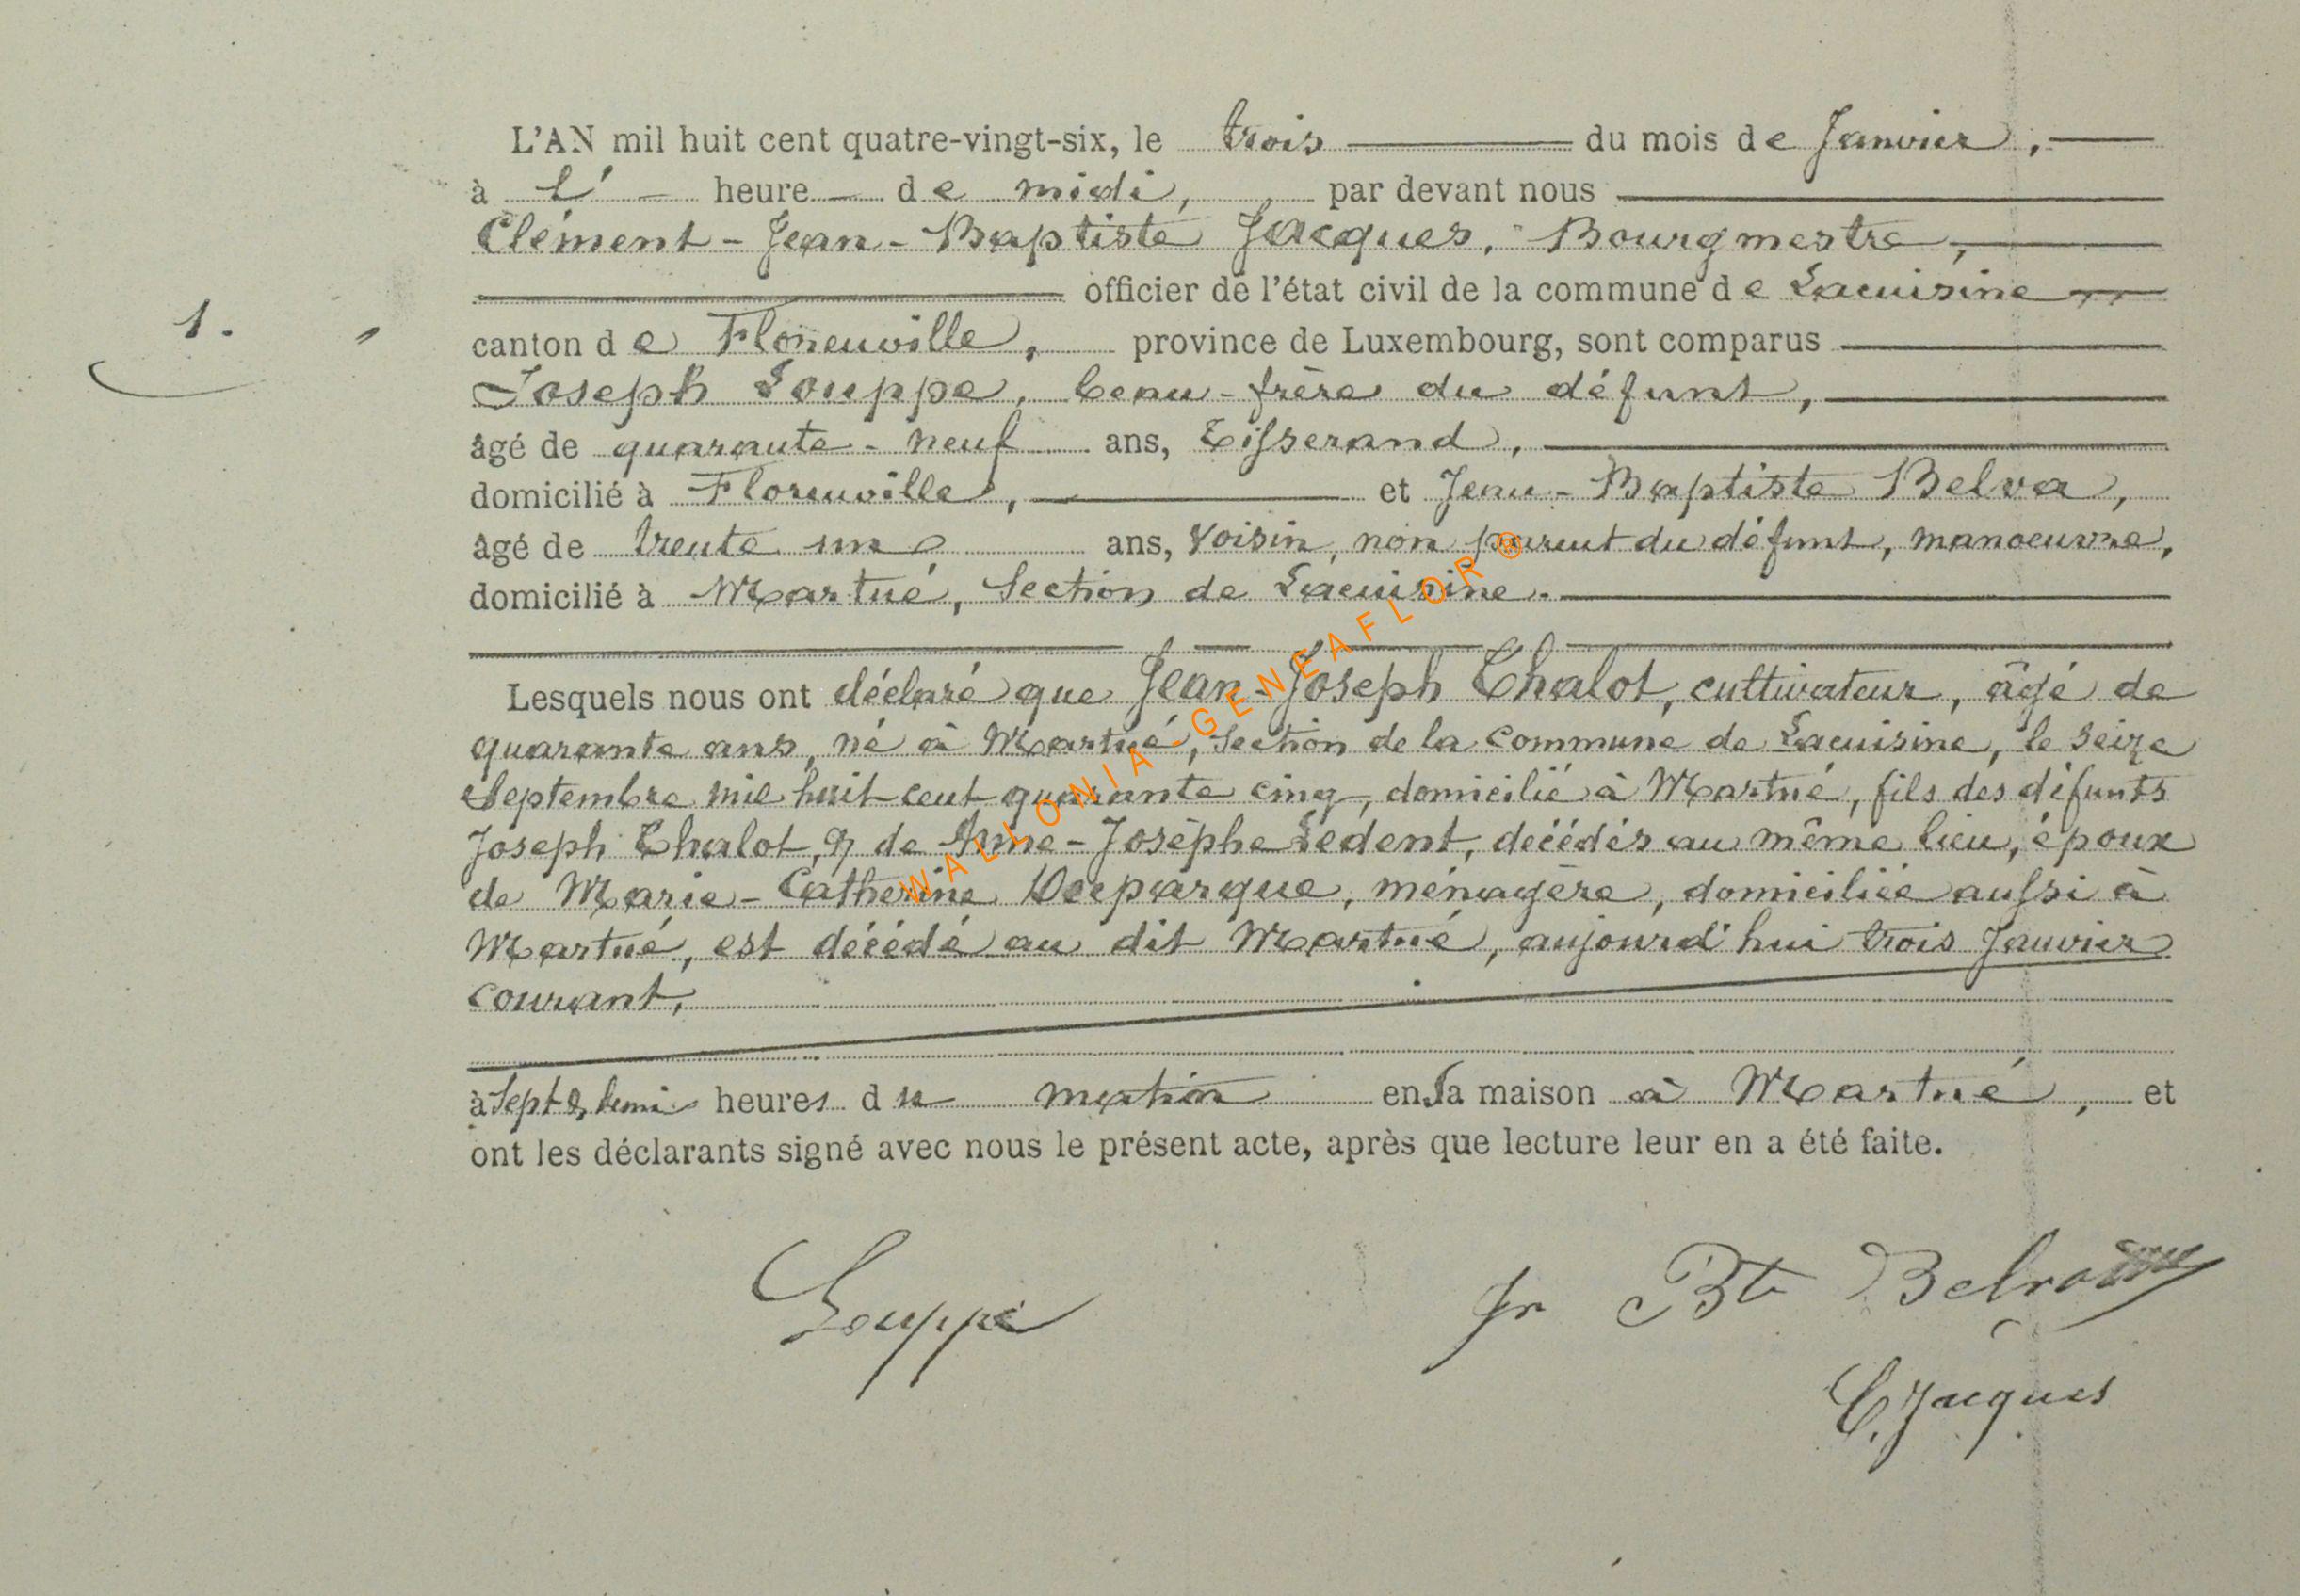 L'AN mil huit cent quatre-vingt-six, le trois du mois de Janvier,
à L' heure de midi, par devant nous
Clément-Jean-Baptiste Jacques, Bourgmestre,
officier de l'état civil de la commune de Lacuisine
1.
canton de Florenville, province de Luxembourg, sont comparus
Joseph Louppe, beau-frère du défunt,
âgé de quarante-neuf ans, Tisserand,
domicilié à Florenville, et Jean-Baptiste Belva,
âgé de trente un ans, Voisin, non parent du défunt, manoeuvre,
domicilié à Martué, Section de Lacuisine.
Lesquels nous ont déclaré que Jean-Joseph Thalot, cultivateur, âgé de
quarante ans, né à Martué, Section de la commune de Lacuisine, le seize
Septembre mil huit cent quarante cinq, domicilié à Martué, fils des défunts
Joseph Thalot, & de Anne-Josèphe Ledent, décédés au même lieu, époux
de Marie-Catherine Deeparque, ménagère, domiciliée aussi à
Martué, est décédé au dit Martué, aujourd'hui trois Janvier
courant,
à Sept & demi heures du matin en sa maison à Martué, et
ont les déclarants signé avec nous le présent acte, après que lecture leur en a été faite.
Louppe
Jn Bte Belva
C. Jacques
WALLONIA-GENEAFLOR®